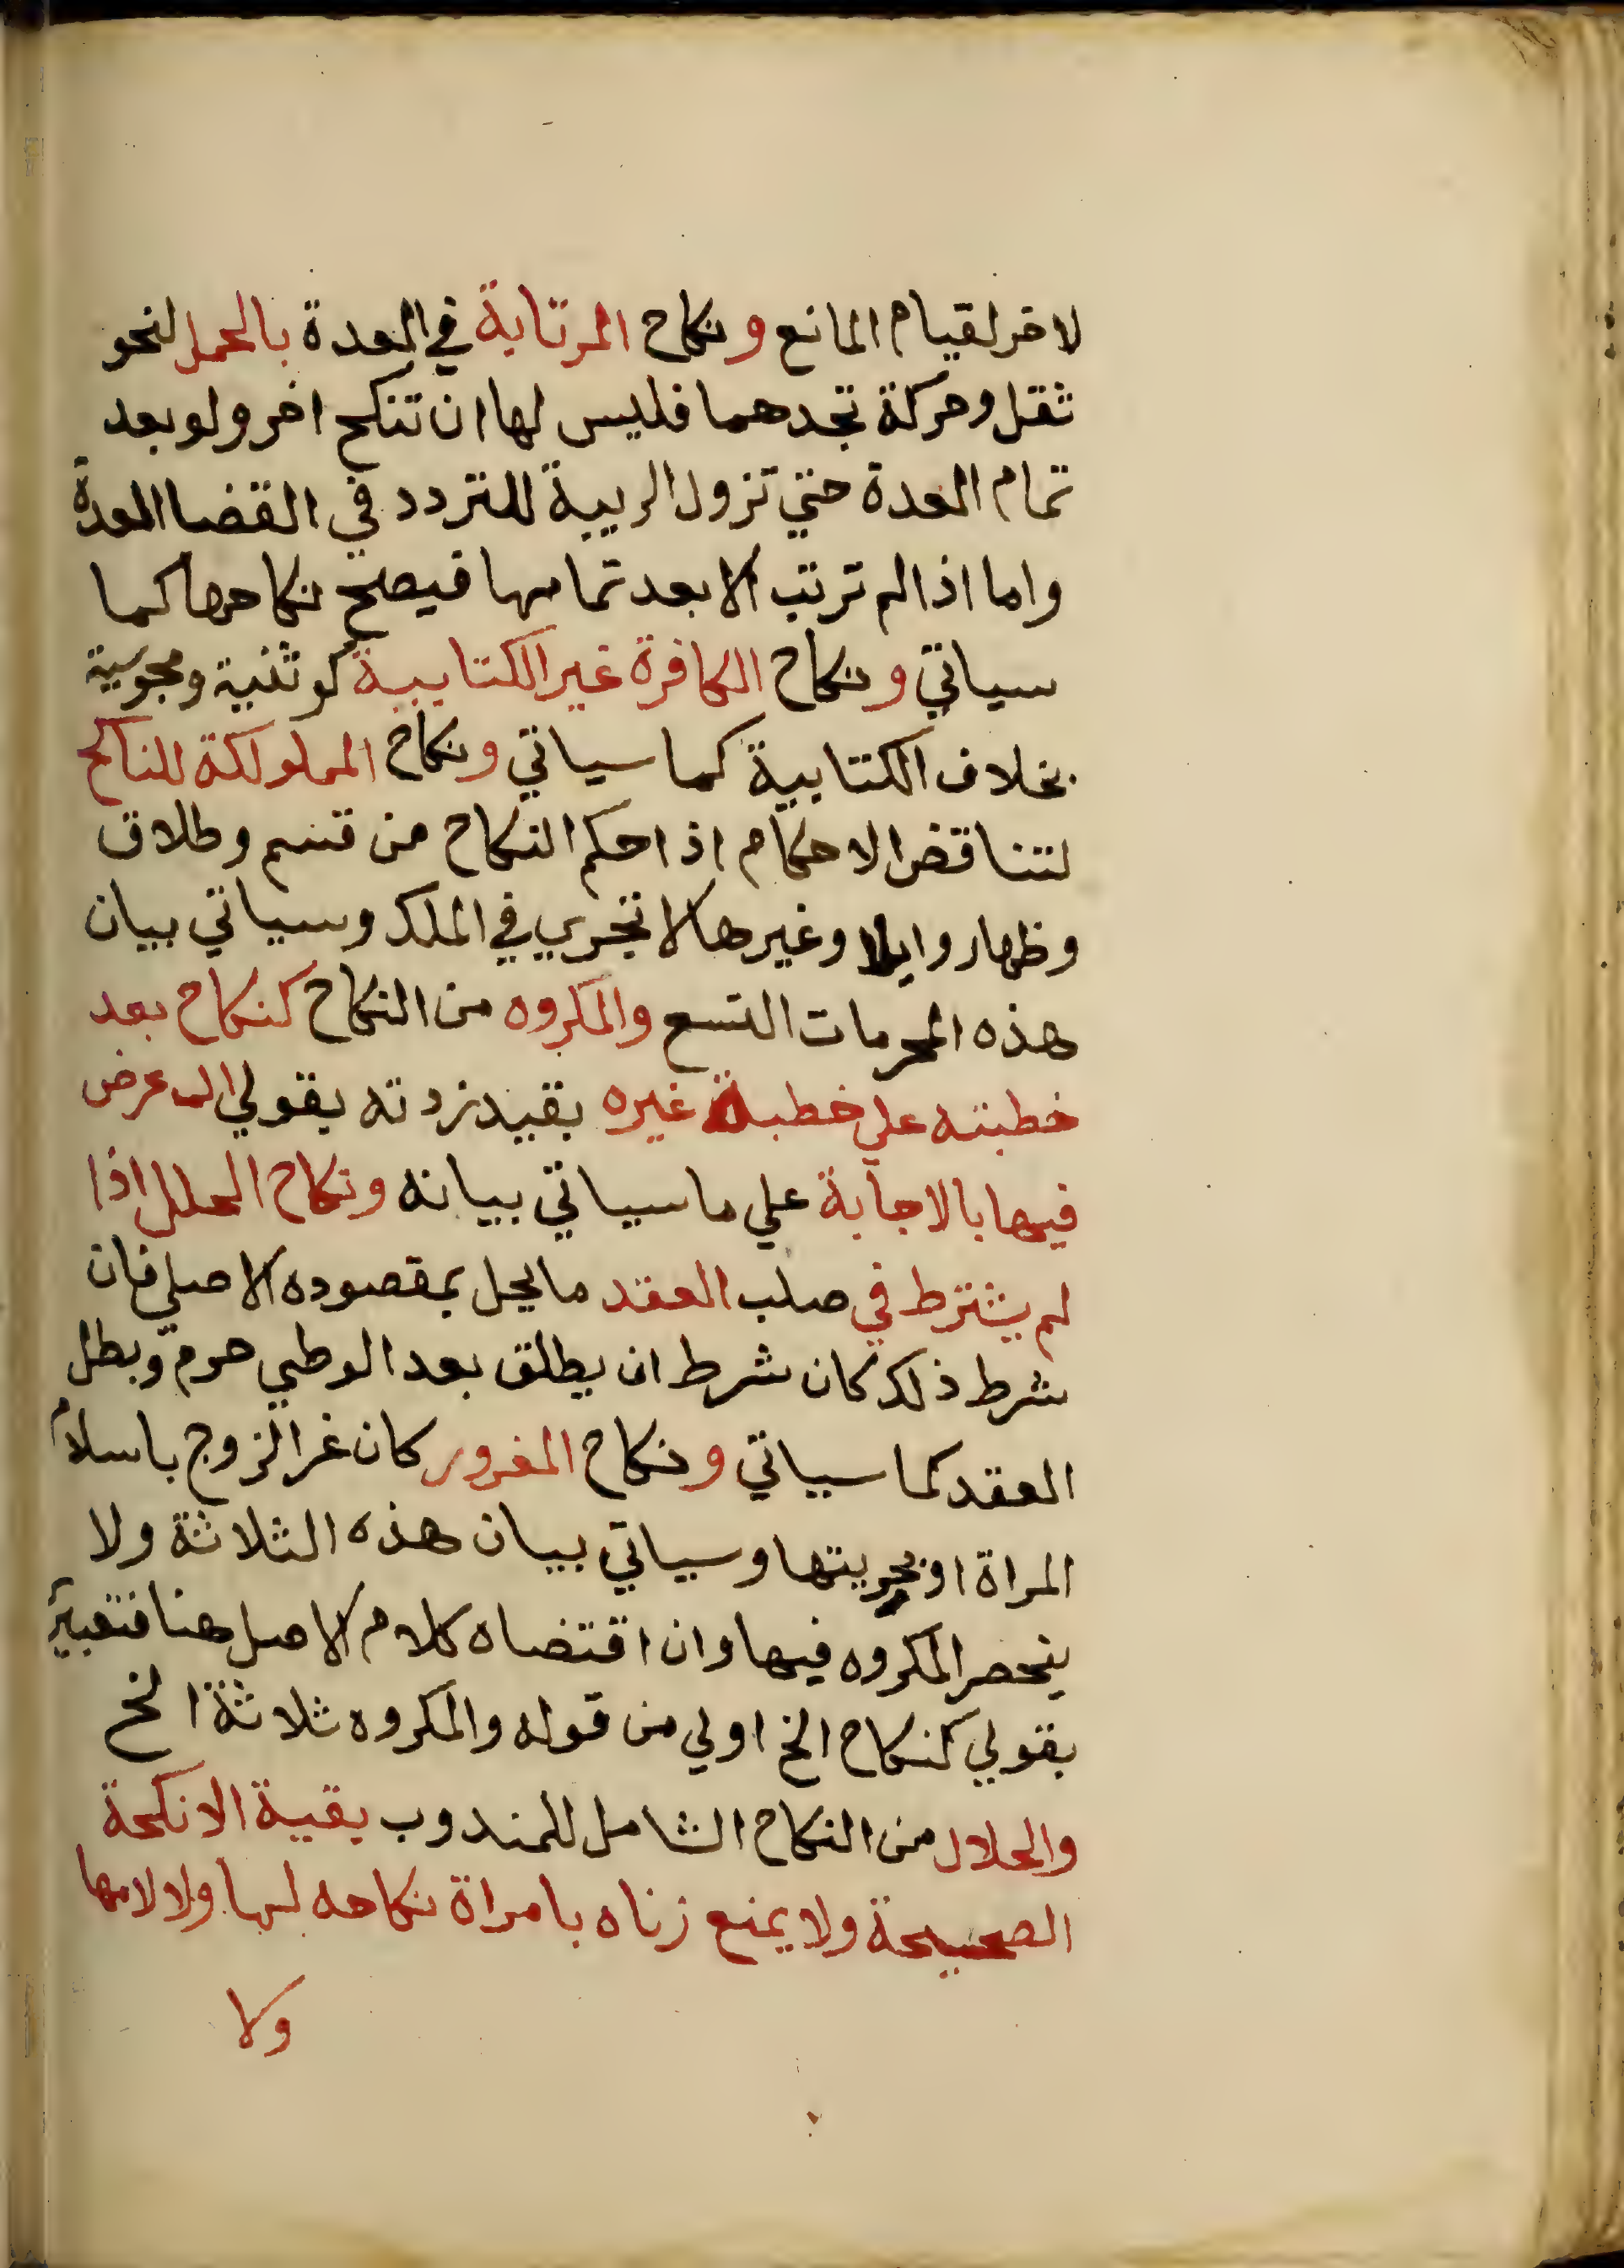 لاخر لقيام المانع ونكاح المرتابة في العدة بالحمل لنحو
ثقل وحركة تجدهما فليس لها ان تنكح اخر ولو بعد
تمام العدة حتي تزول الريبة للتردد في انقضا العدة
واما اذا لم ترتب الا بعد تمامها فيصح نكاحها كما
سياتي ونكاح الكافرة غير الكتابية كوثنية ومجوسية
بخلاف الكتابية كما سياتي ونكاح المملوكة للناكح
لتناقض الاحكام اذ احكم النكاح من قسم وطلاق
وظهار وايلا وغيرها لا تجري في الملك وسياتي بيان
هذه المحرمات التسع والمكروه من النكاح كنكاح بعد
خطبته علي خطبة غيره بقيد زدته بقولي ان عرض
فيها بالاجابة علي ما سياتي بيانه ونكاح المحلل اذا
لم يشترط في صلب العقد ما يخل بمقصوده الاصلي فان
شرط ذلك كان شرط ان يطلق بعد الوطي حرم وبطل
العقد كما سياتي ونكاح المغرور كان غر الزوج باسلام
المراة او بحريتها وسياتي بيان هذه الثلاثة ولا
ينحصر المكروه فيها وان اقتضاه كلام الاصل هنا فتعبير
بقولي كنكاح الخ اولي من قوله والمكروه ثلاثة الخ
والحلال من النكاح الشامل للمندوب بقية الانكحة
الصحيحة ولا يمنع زناه بامراة نكاحه لها ولا لامها
ولا